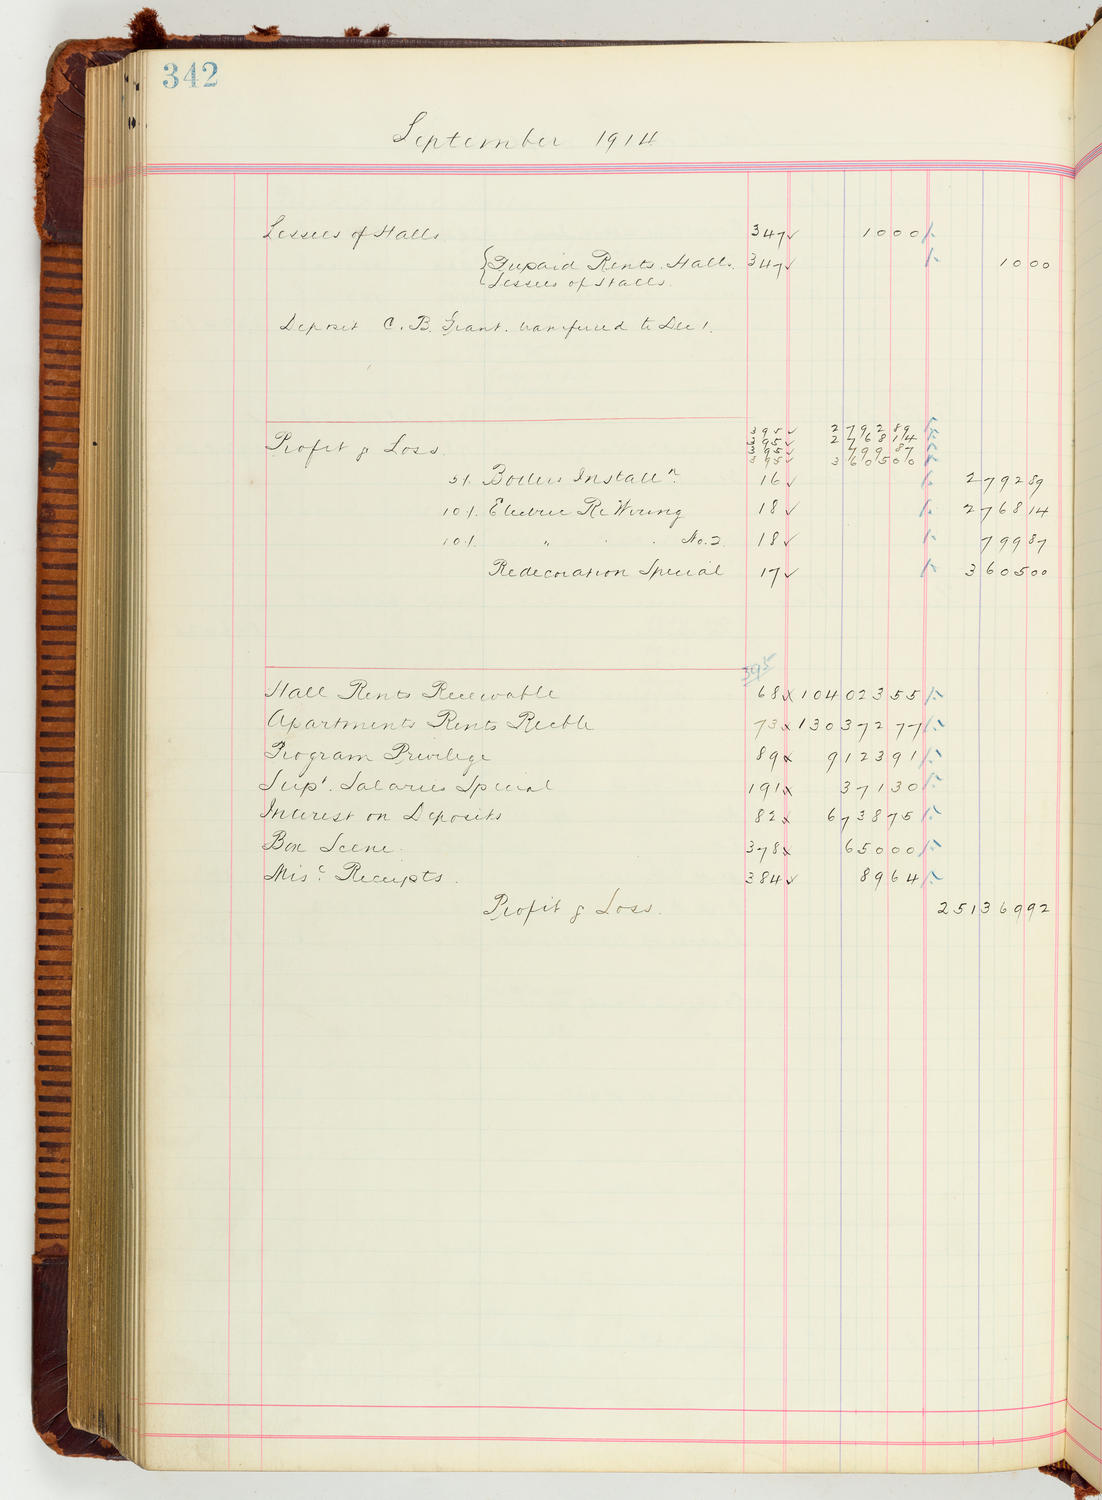 342
September 1914
Lessees of Halls 347✓ 1000
Prepaid Rents. Halls. 347✓ 1000
Lessees of Halls.
Deposit C. B. Grant. transferred to Dec 1.
395✓ 279289
395✓ 276814
Profit & Loss. 395✓ 79987
395✓ 360500
5%. Boilers Installn. 16✓ 279289
10%. Electric ReWiring 18✓ 276814
10%. " . . No. 2. 18✓ 79987
Redecoration Special 17✓ 360500
395
Hall Rents Receivable 68x 10402355
Apartments Rents Recble 73x 13037277
Program Privilege 89x 912391
Supt. Salaries Special 191x 37130
Interest on Deposits 82x 673875
Box Scene. 378x 65000
Misc. Receipts. 384✓ 8964
Profit & Loss. 25136992